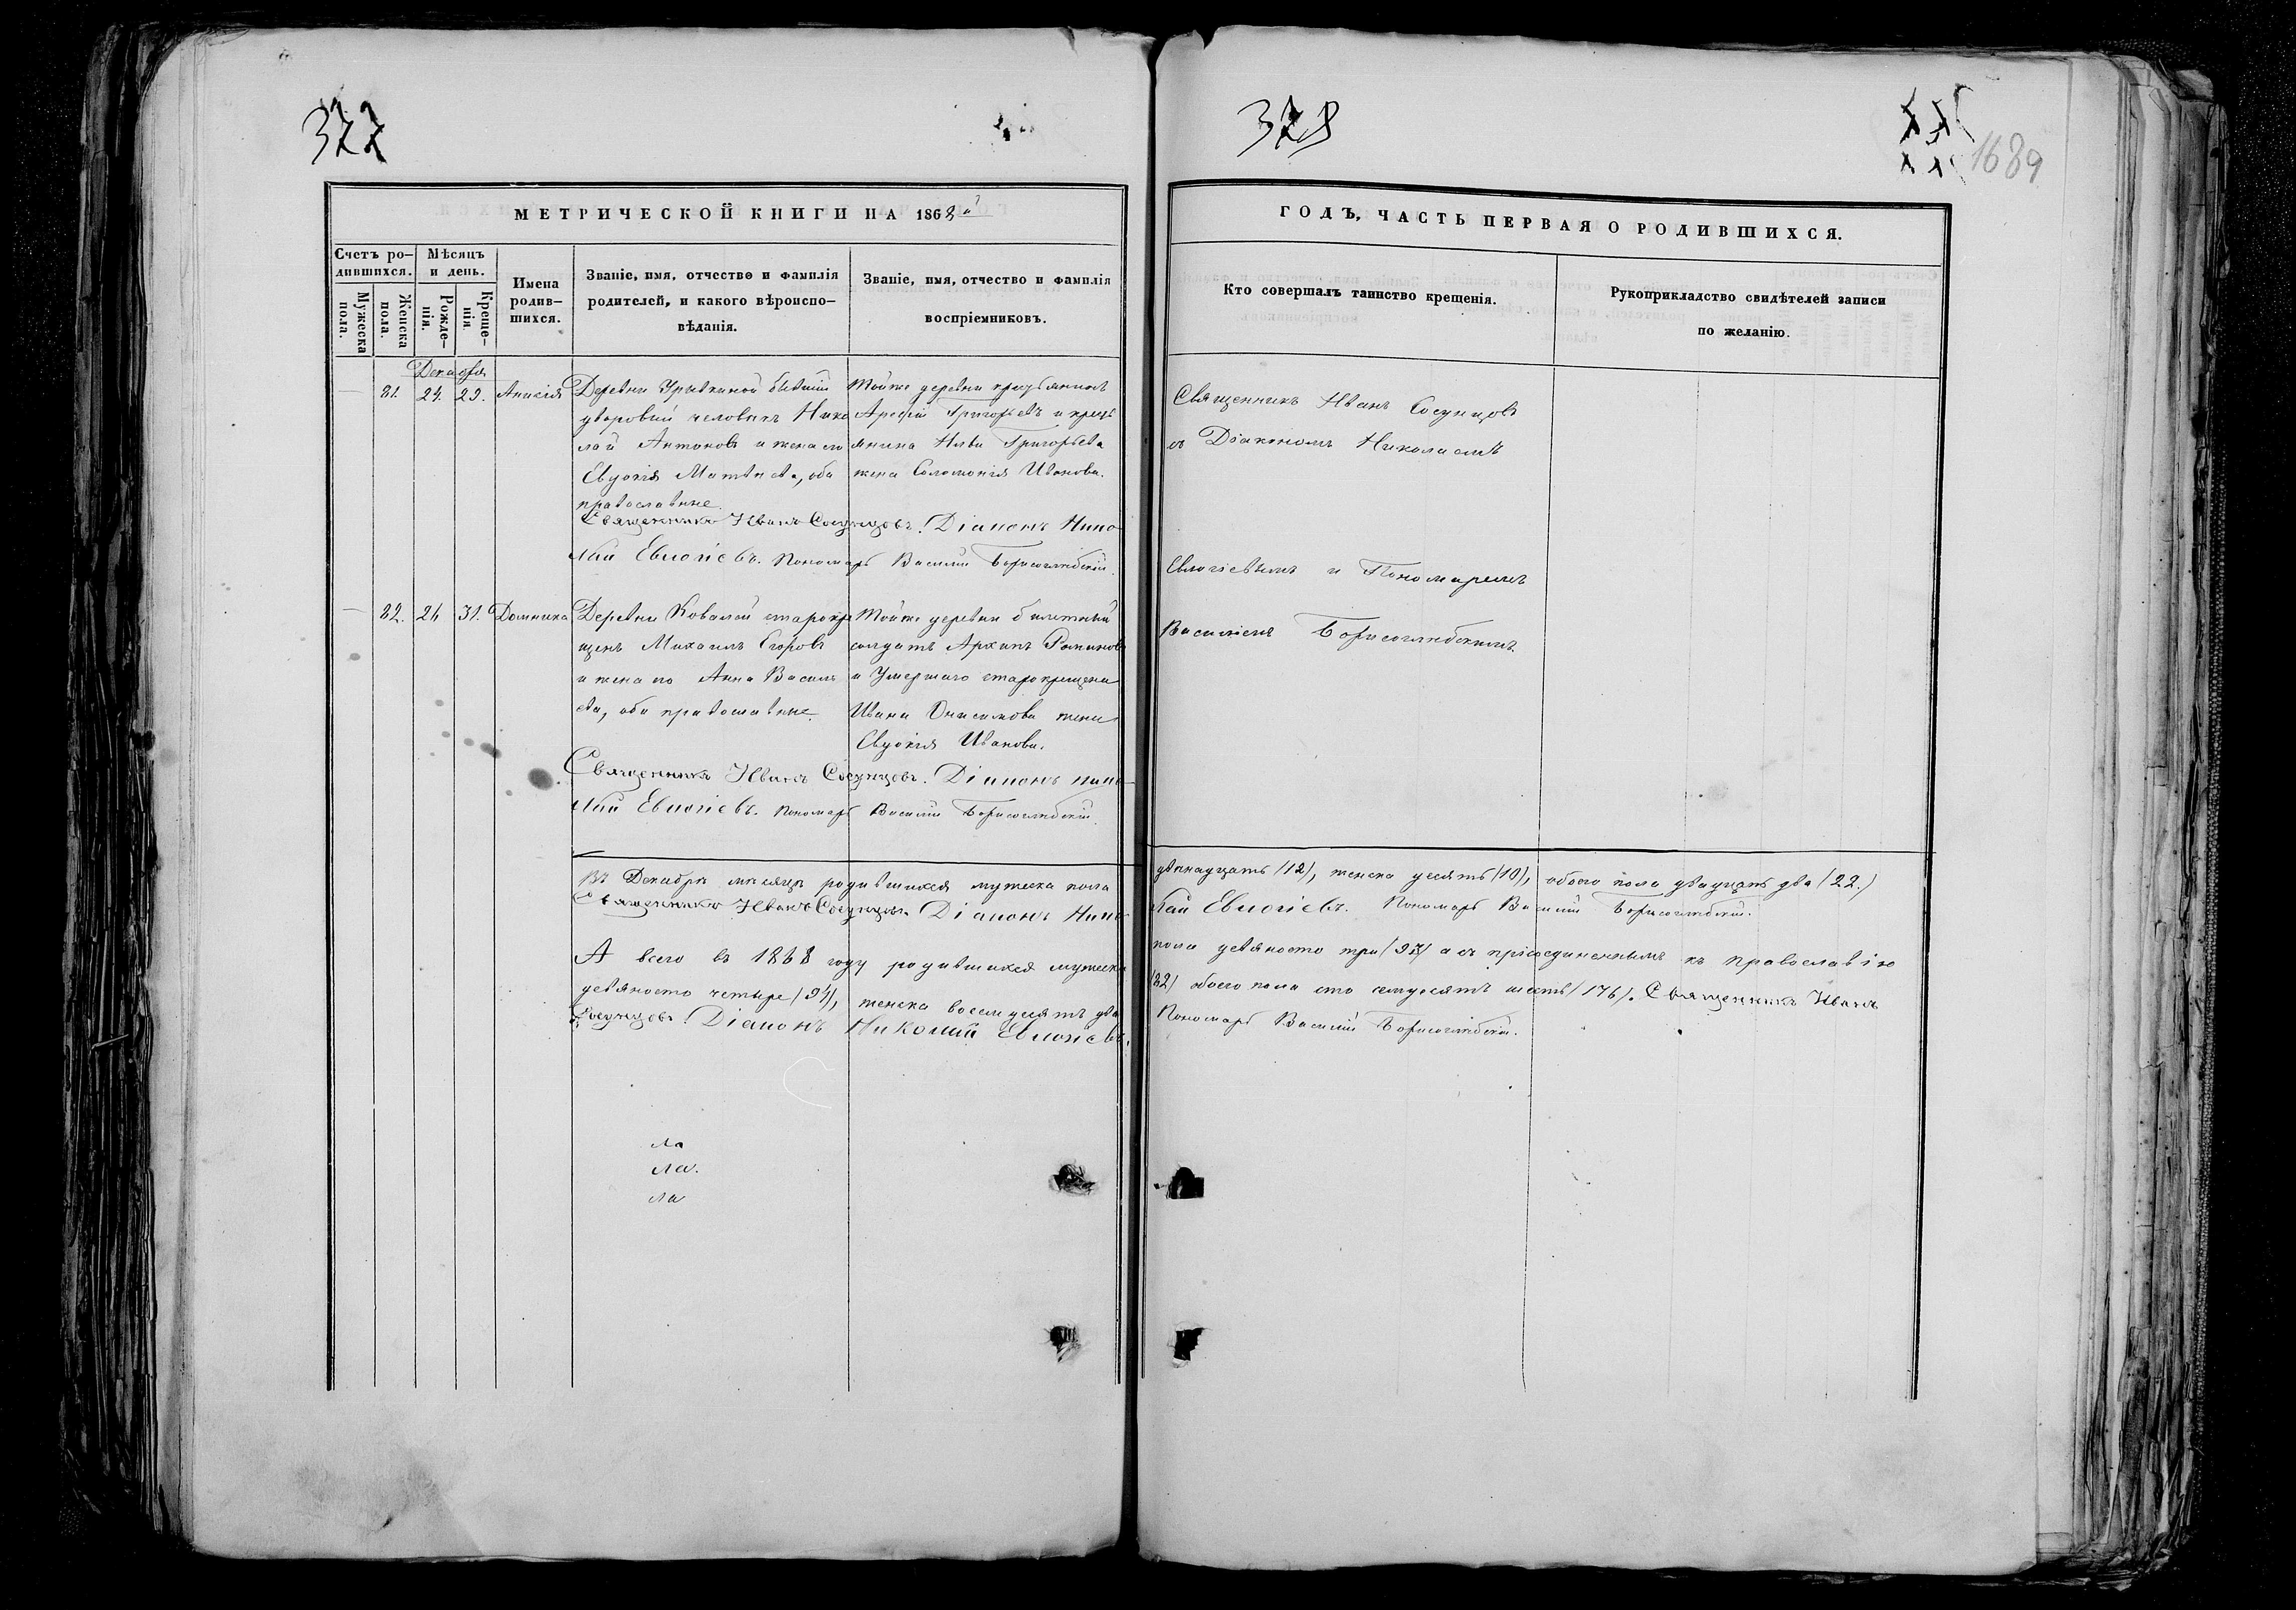 377
378
1689
МЕТРИЧЕСКОЙ КНИГИ НА 1868й
ГОДЪ, ЧАСТЬ ПЕРВАЯ О РОДИВШИХСЯ.
Счетъ ро-
дившихся.
Мужеска
пола.
Женска
пола.
Мѣсяцъ
и день.
Рожде-
нія.
Креще-
нія.
Имена
родив-
шихся.
Званіе, имя, отчество и фамилія
родителей, и какого вѣроиспо-
вѣданія.
Званіе, имя, отчество и фамилія
воспріемниковъ.
Кто совершалъ таинство крещенія.
Рукоприкладство свидѣтелей записи
по желанію.
Декабря
81. 24. 29. Анисія
Деревни бывший
дворовый человѣкъ Нико
лай Антоновъ и жена его
Евдокія Матвѣева, оба
православные.
Тойже деревни крестьянинъ
Арефій Григорьевъ и кресть
янина Ильи Григорьева
жена Соломонія Иванова.
Священникъ Иванъ Сосунцовъ
съ Діакономъ Николаемъ
Евлогіевымъ и Пономаремъ
Василіемъ Борисоглѣбскимъ.
Священникъ Иванъ Сосунцовъ. Діаконъ Нико
лай Евлогіевъ. Пономарь Василій Борисоглѣбскій.
82. 26 31. Домника
Деревни Ковалей старокре
щенъ Михаилъ Егоровъ
и жена его Анна Василь
ева, оба православные.
Тойже деревни билетный
солдатъ Архипъ Романовъ
и Умершаго старокрещена
Ивана Онисимова жена
Евдокія Иванова.
Священникъ Иванъ Сосунцовъ. Діаконъ Нико-
лай Евлогіевъ. Пономарь Василій Борисоглѣбскій.
Въ Декабрѣ мѣсяцѣ родившихся мужеска пола двѣнадцать (12), женска десять (10), обоего пола двадцать два (22.)
Священникъ Иванъ Сосунцовъ. Діаконъ Нико лай Евлогіевъ. Пономарь Василій Борисоглѣбскій.
А всего въ 1868 году родившихся мужеска пола девяносто три (93) а съ прісоединеннымъ къ православію
девяносто четыре (94), женска восемдесятъ два (82) обоего пола сто семдесятъ шесть (176). Священникъ Иванъ
Сосунцовъ. Діаконъ Николай Евлогіевъ. Пономарь Василій Борисоглѣбскій.
ла
ла.
ла